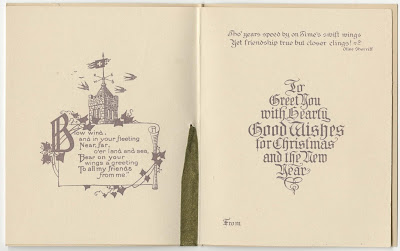 Blow wind,
and in your fleeting
Near, far,
o'er land and sea,
Bear on your
wings a greeting
To all my friends
from me.
Tho' years speed by on Time's swift wings
Yet friendship true but closer clings!
Merrill
To
Greet You
with Hearty
Good Wishes
for Christmas
and the New
Year
From